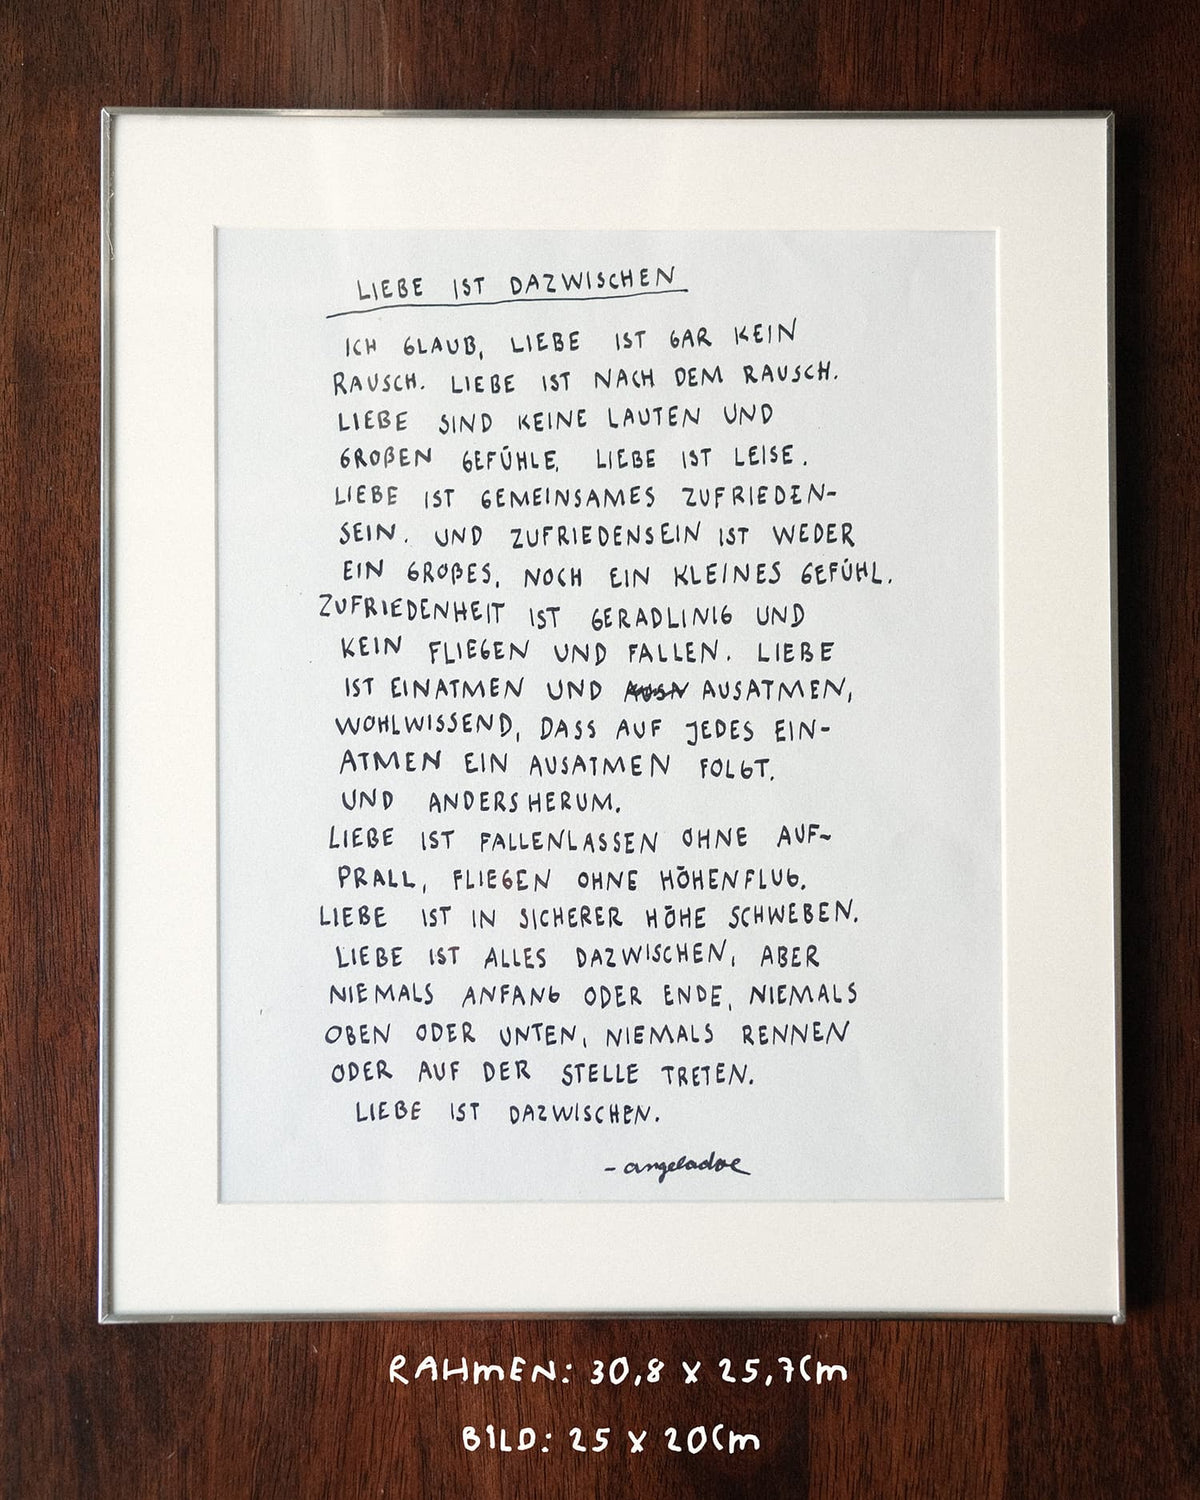 LIEBE IST DAZWISCHEN
ICH GLAUB, LIEBE IST GAR KEIN
RAUSCH. LIEBE IST NACH DEM RAUSCH.
LIEBE SIND KEINE LAUTEN UND
GROßEN GEFÜHLE, LIEBE IST LEISE.
LIEBE IST GEMEINSAMES ZUFRIEDEN-
SEIN. UND ZUFRIEDENSEIN IST WEDER
EIN GROßES, NOCH EIN KLEINES GEFÜHL.
ZUFRIEDENHEIT IST GERADLINIG UND
KEIN FLIEGEN UND FALLEN. LIEBE
IST EINATMEN UND AUSATMEN,
WOHLWISSEND, DASS AUF JEDES EIN-
ATMEN EIN AUSATMEN FOLGT.
UND ANDERSHERUM.
LIEBE IST FALLENLASSEN OHNE AUF-
PRALL, FLIEGEN OHNE HÖHENFLUG.
LIEBE IST IN SICHERER HÖHE SCHWEBEN.
LIEBE IST ALLES DAZWISCHEN, ABER
NIEMALS ANFANG ODER ENDE, NIEMALS
OBEN ODER UNTEN, NIEMALS RENNEN
ODER AUF DER STELLE TRETEN.
LIEBE IST DAZWISCHEN.
- angeladoe
RAHMEN: 30,8 X 25,7cm
BILD: 25 X 20cm